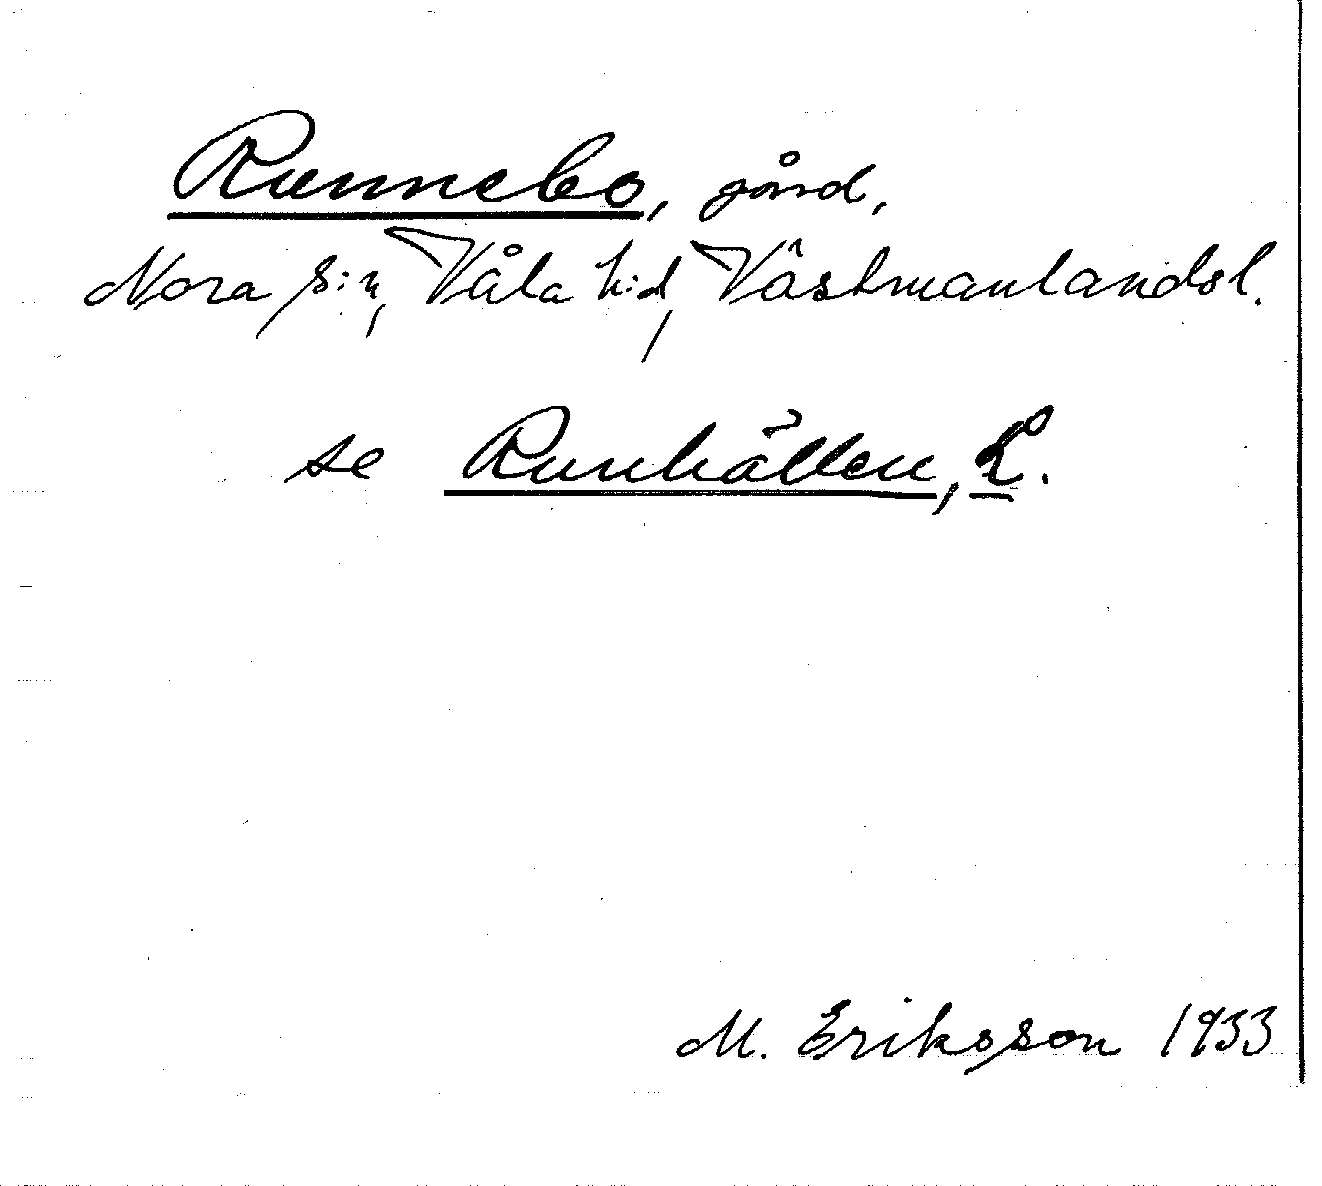 Runnebo, gård,
Nora s:n, Våla h:d, Västmanlandsl.
se Runhällen, L.
M. Eriksson 1933